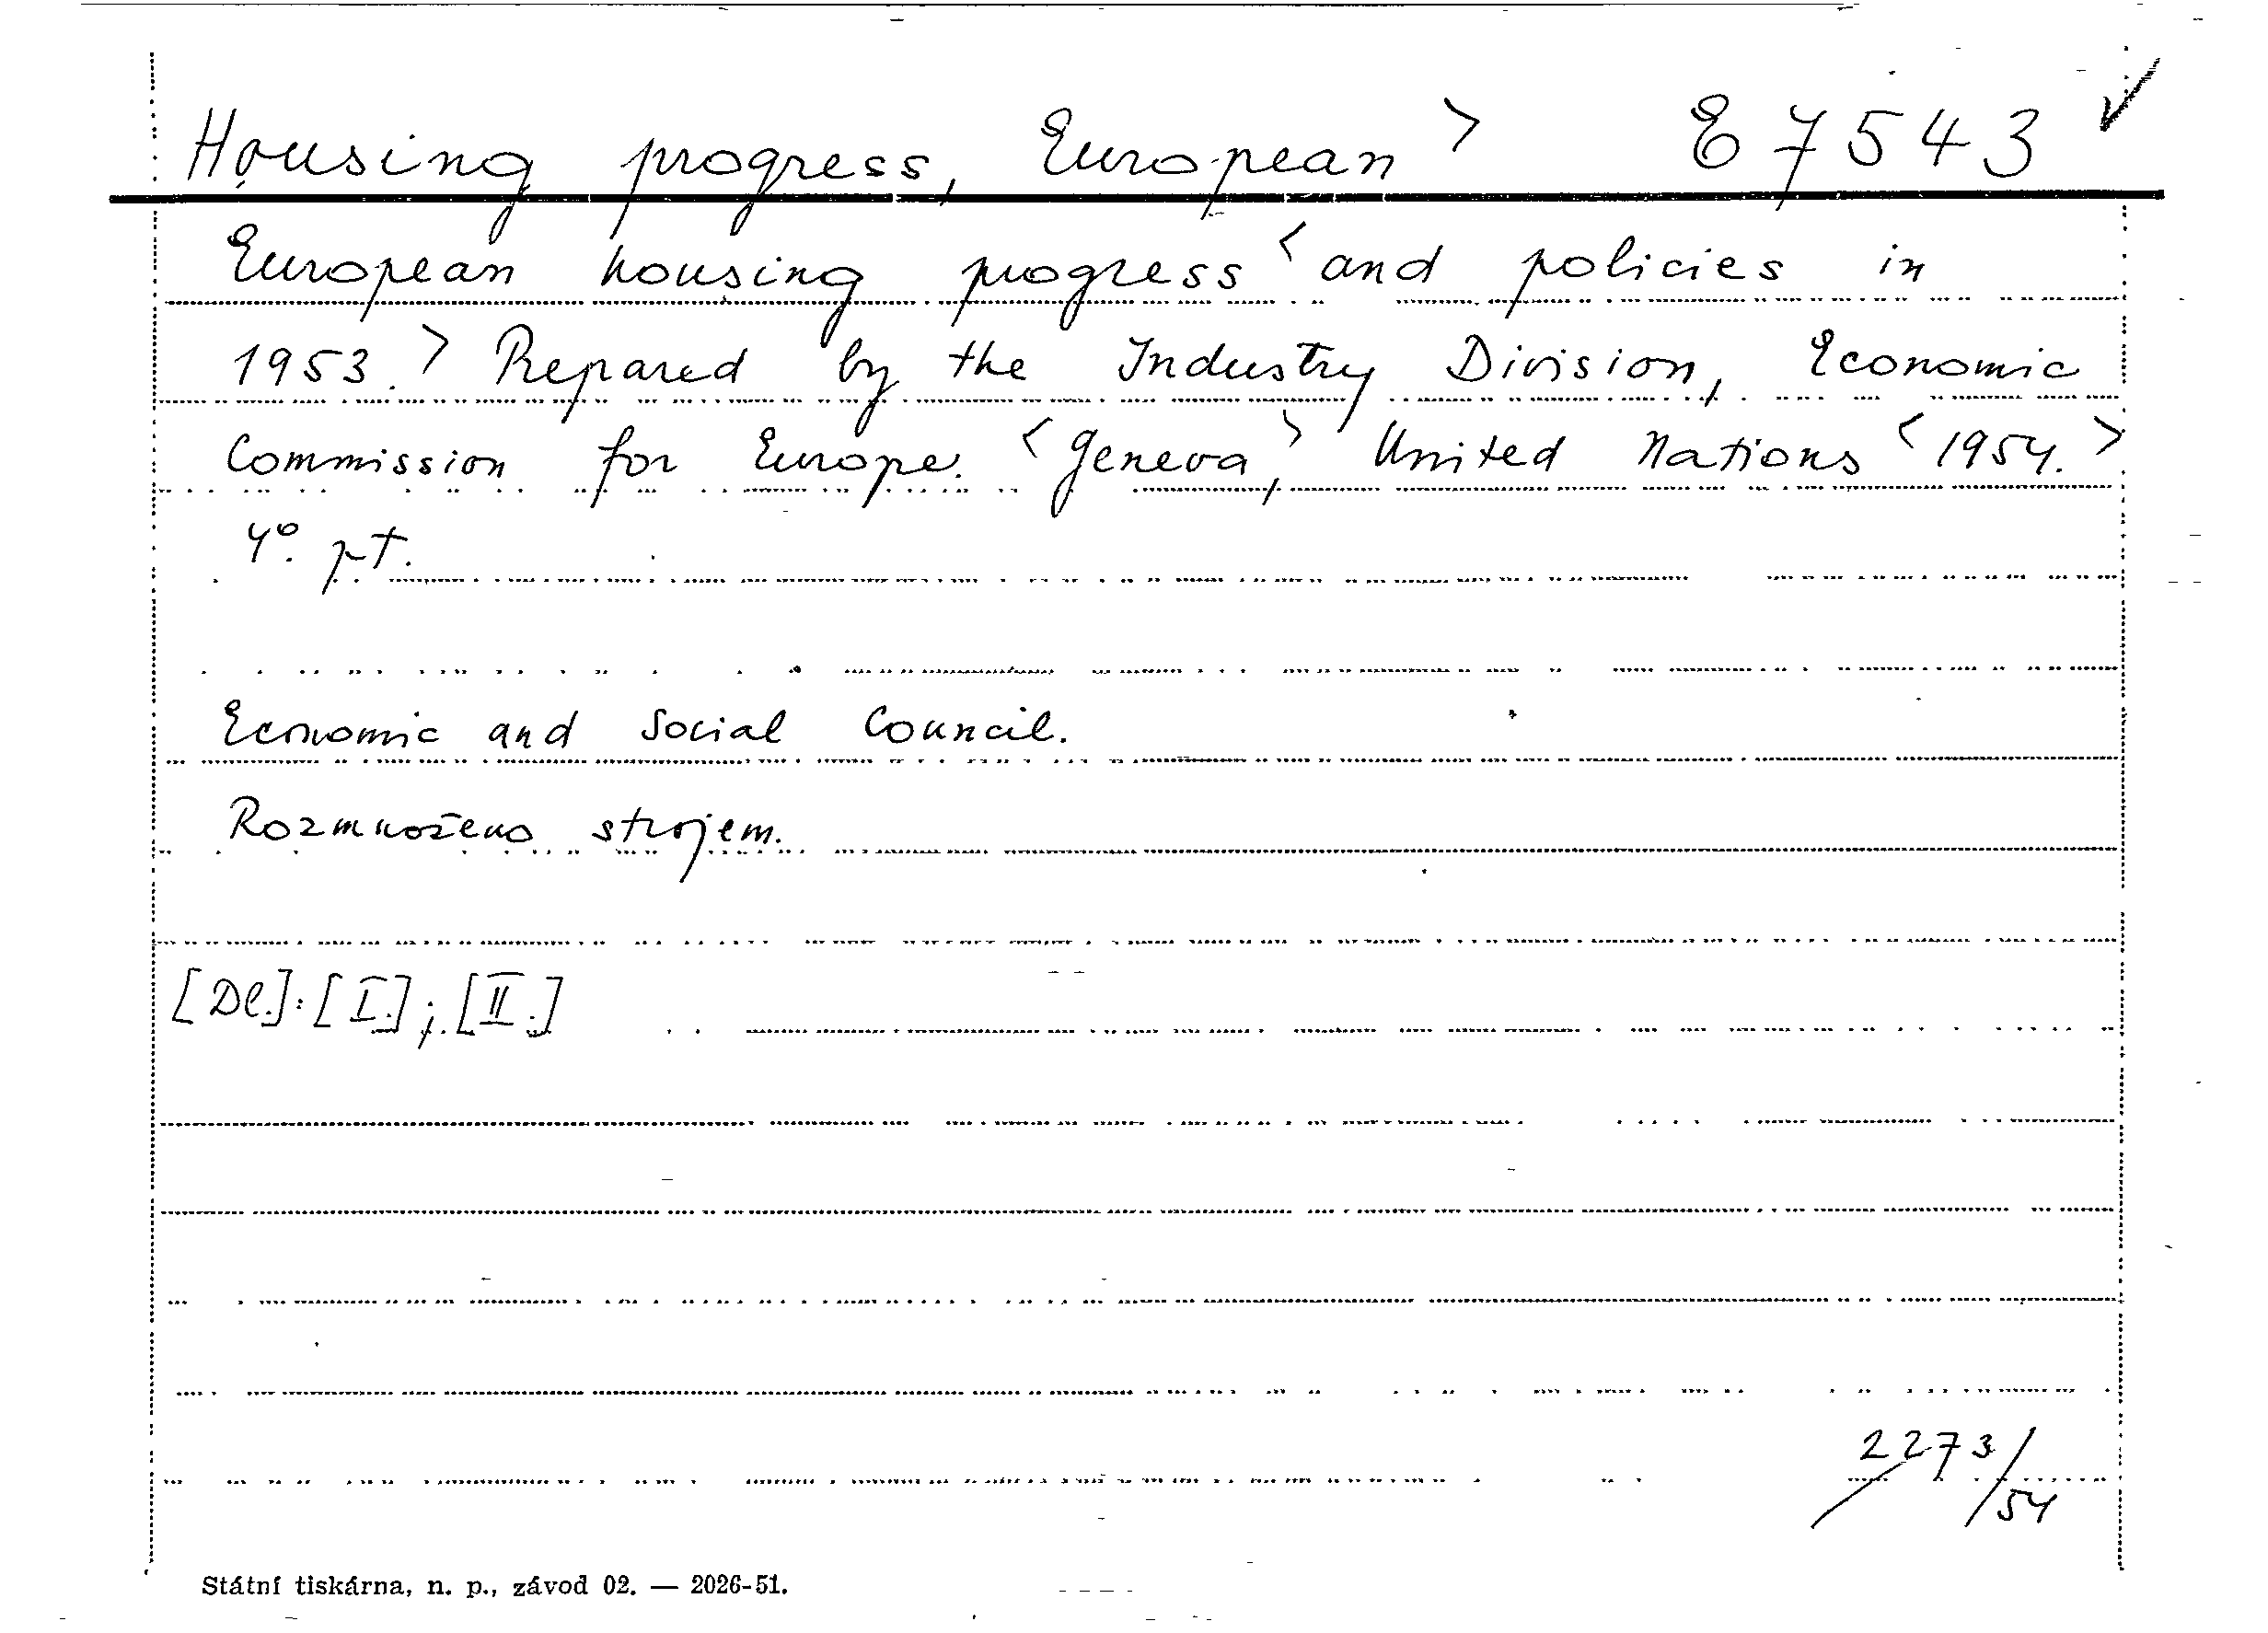 Housing progress, European > E 7543 ✓
European housing progress < and policies in
1953. > Prepared by the Industry Division, Economic
Commission for Europe. < Geneva, > United Nations < 1954. >
4°. pt.
Economic and Social Council.
Rozmnoženo strojem.
[Dl.]: [I.]; [II.]
2273/54
Státní tiskárna, n. p., závod 02. — 2026-51.